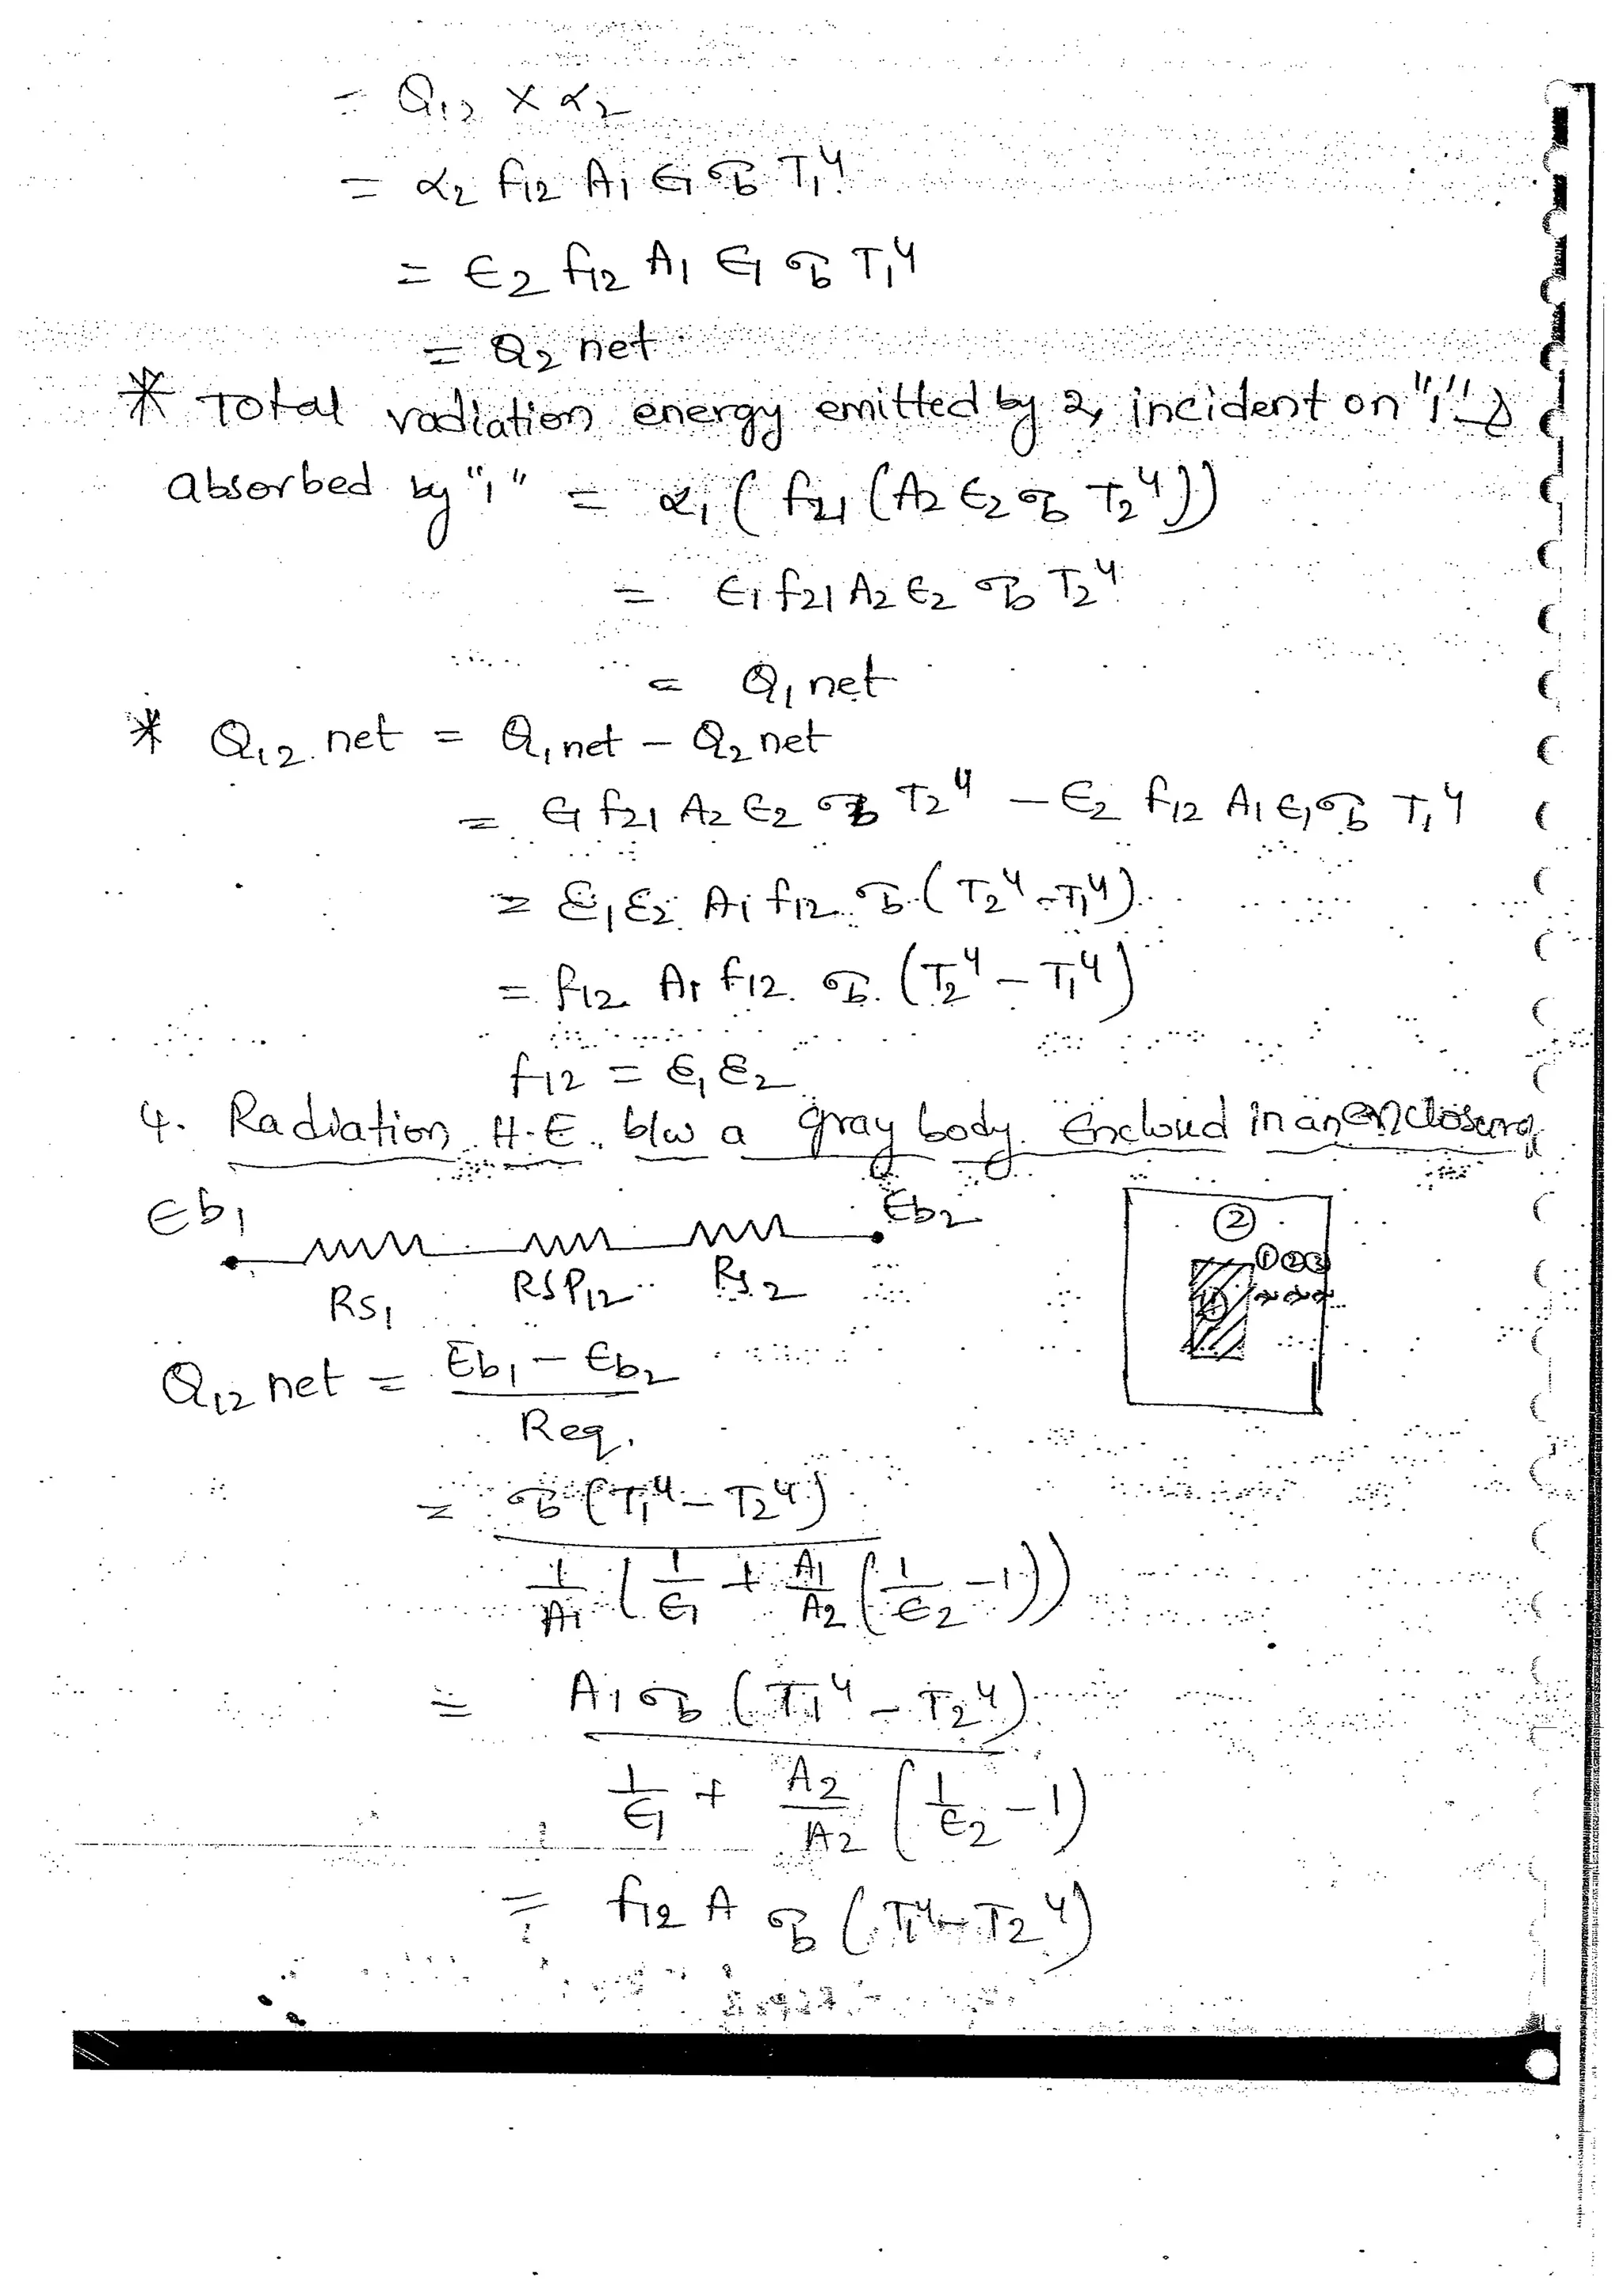 = Q₁₂ × α₂
= α₂ f₁₂ A₁ ϵ₁ σb T₁⁴
= ϵ₂ f₁₂ A₁ ϵ₁ σb T₁⁴
= Q₂ net
* Total radiation energy emitted by 2, incident on "1" &
absorbed by "1" = α₁ ( f₂₁ (A₂ ϵ₂ σb T₂⁴))
= ϵ₁ f₂₁ A₂ ϵ₂ σb T₂⁴
= Q₁ net
* Q₁₂ net = Q₁ net − Q₂ net
= ϵ₁ f₂₁ A₂ ϵ₂ σb T₂⁴ − ϵ₂ f₁₂ A₁ ϵ₁ σb T₁⁴
= ε₁ ε₂ A₁ f₁₂ σb (T₂⁴ − T₁⁴)
= f₁₂ A₁ f₁₂ σb (T₂⁴ − T₁⁴)
f₁₂ = ε₁ ε₂
4. Radiation H.E. b/w a gray body Enclosed in an enclosure
Eb₁ Eb₂
RS₁ RSP₁₂ RS₂
②
① ② ③
①
Q₁₂ net = Eb₁ − Eb₂
Req.
= σb (T₁⁴ − T₂⁴)
1/A₁ (1/ϵ₁ + A₁/A₂ (1/ϵ₂ − 1))
= A₁ σb (T₁⁴ − T₂⁴)
1/ϵ₁ + A₂/A₂ (1/ϵ₂ − 1)
= f₁₂ A σb (T₁⁴ − T₂⁴)